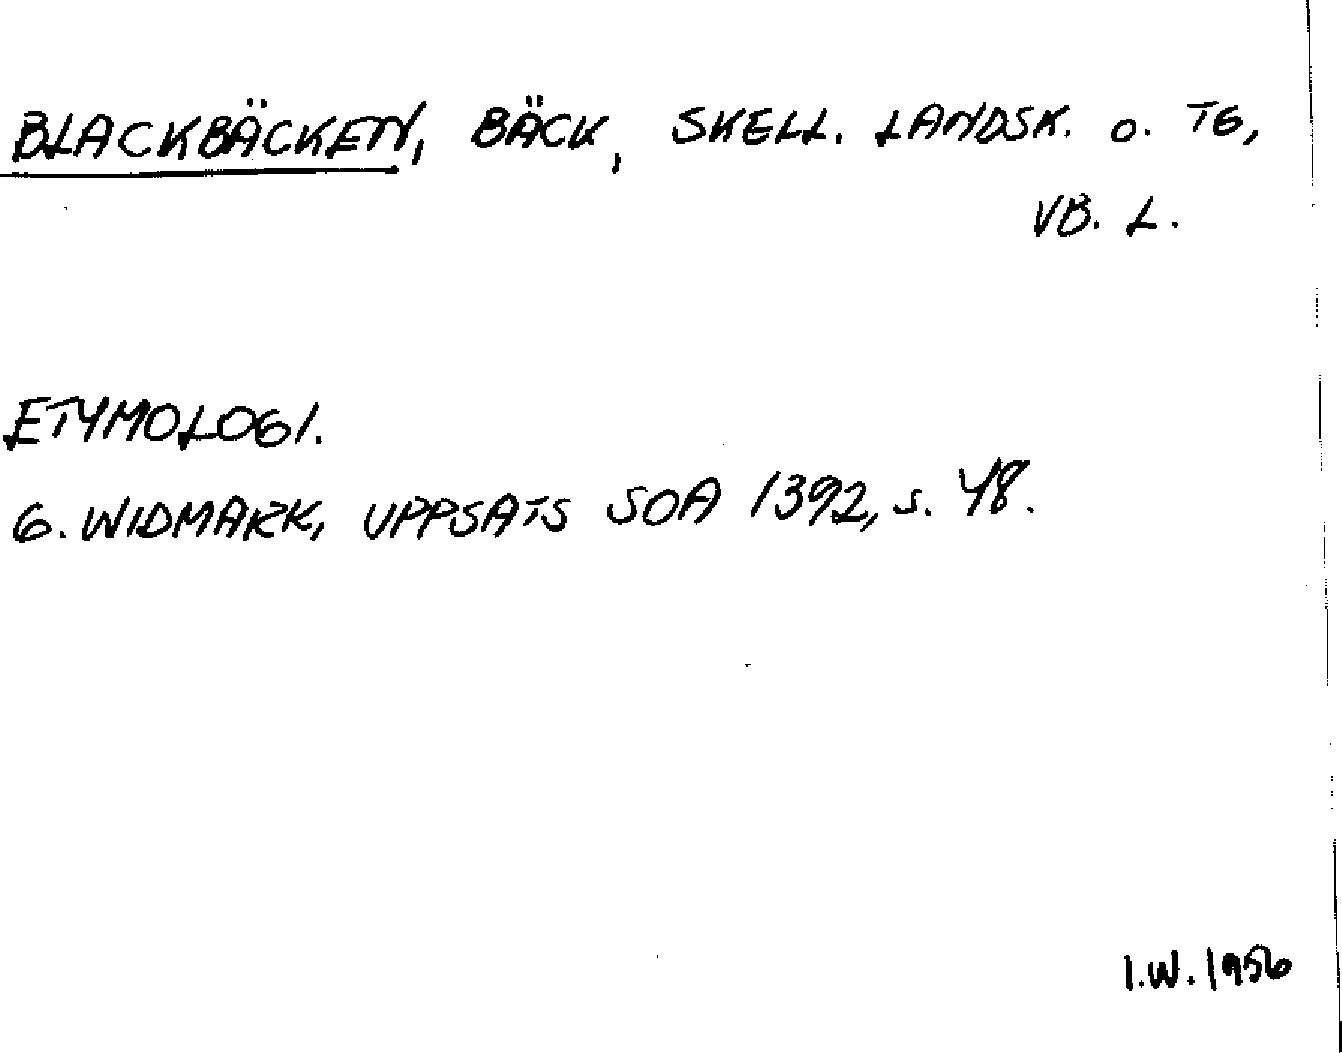 BLACKBÄCKEN, BÄCK, SKELL. LANDSK. o. TG,
VB. L.
ETYMOLOGI.
G. WIDMARK, UPPSATS SOA 1392, s. 48.
I.W. 1956